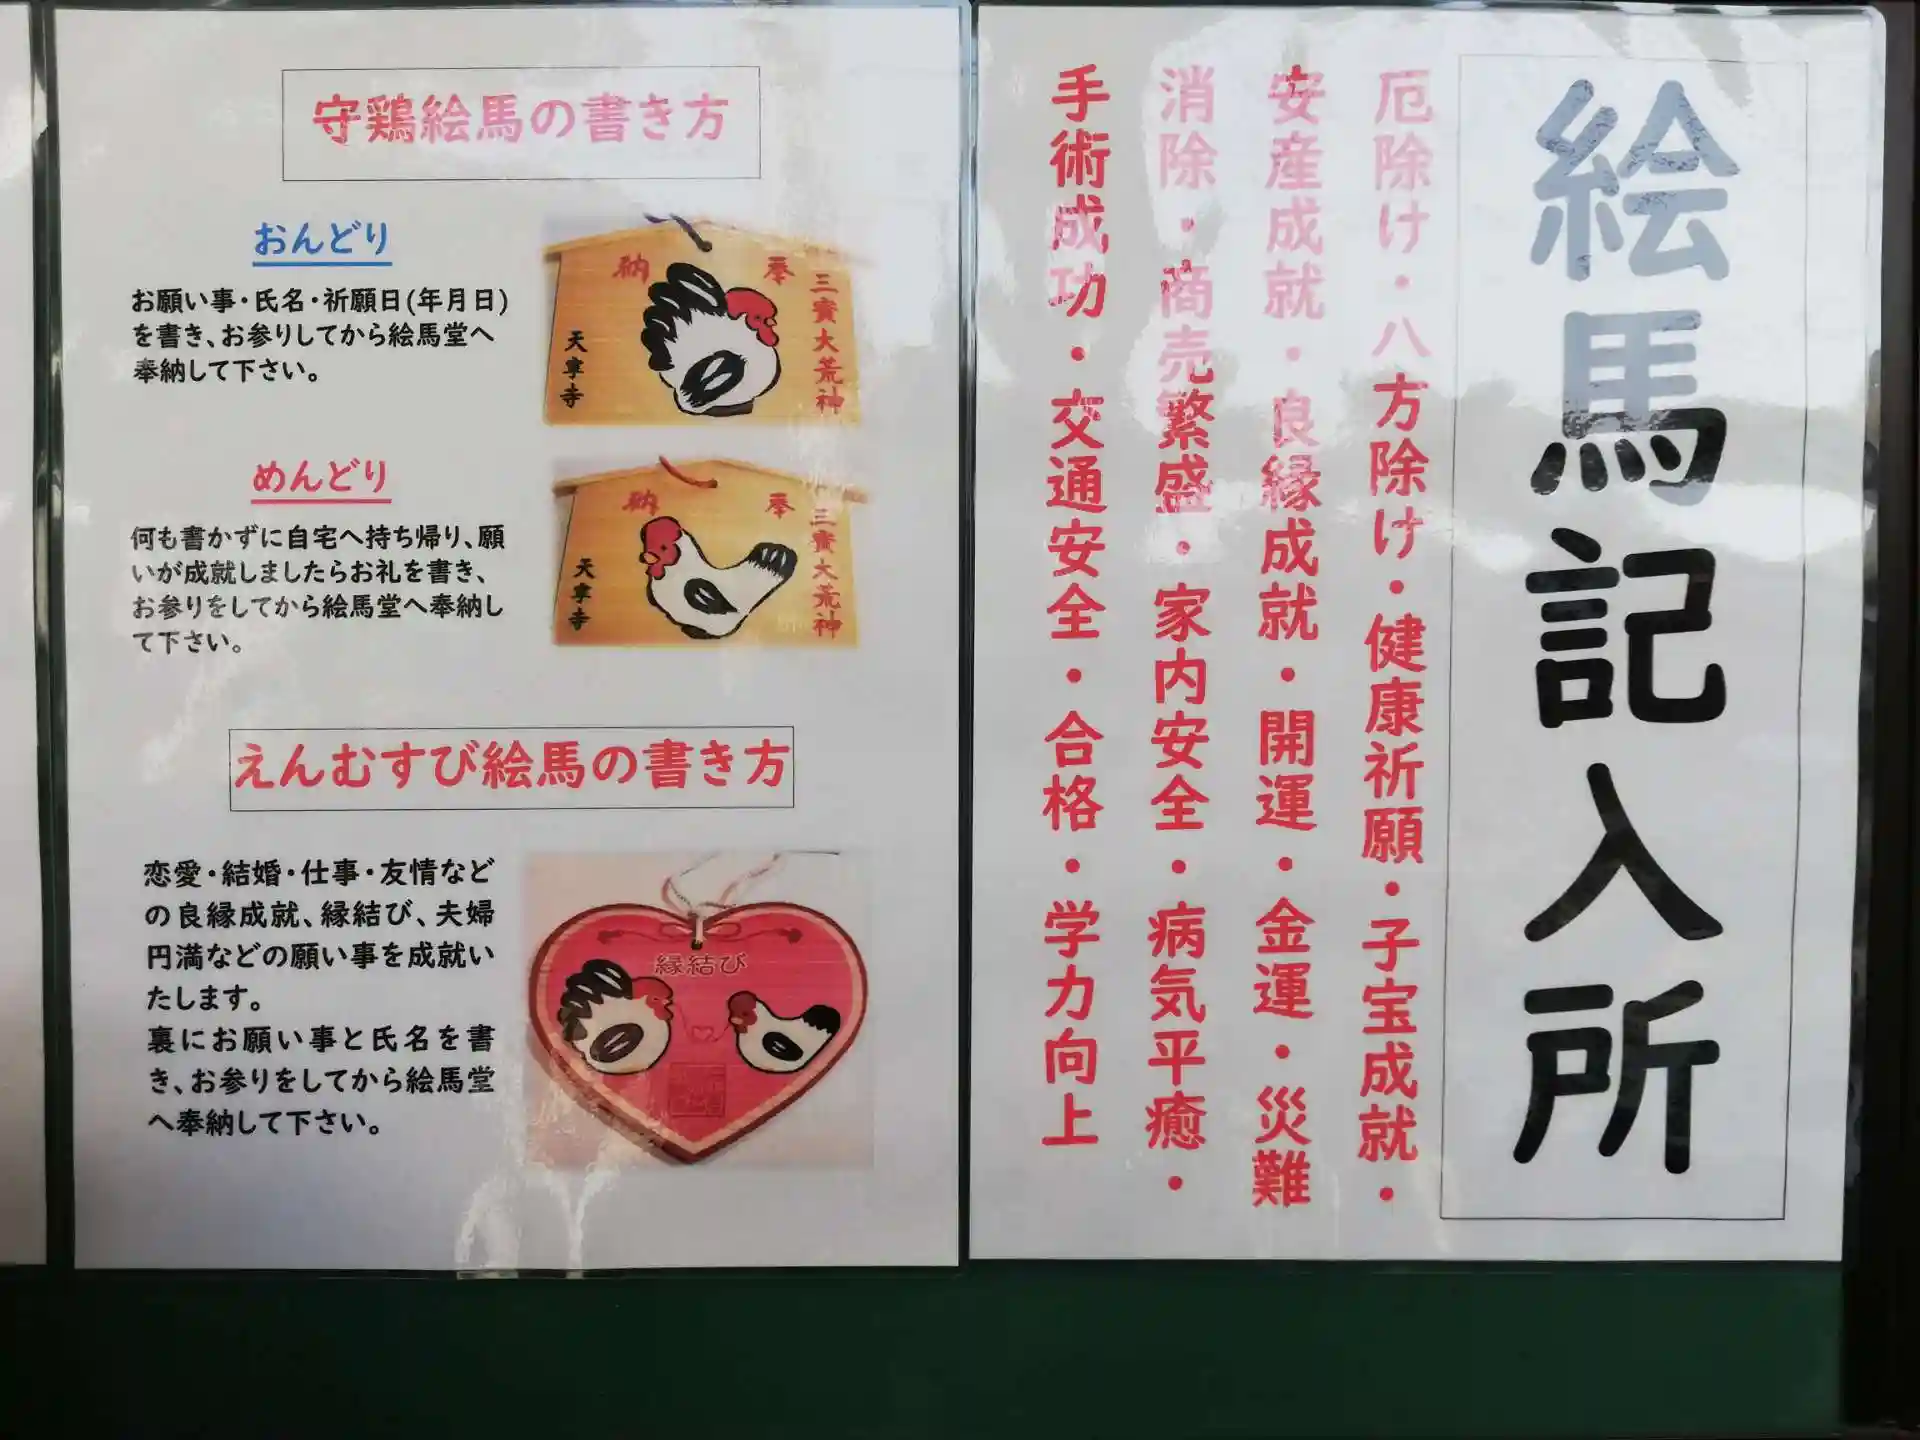 絵馬記入所
厄除け・八方除け・健康祈願・子宝成就・
安産成就・良縁成就・開運・金運・災難
消除・商売繁盛・家内安全・病気平癒・
手術成功・交通安全・合格・学力向上
守鶏絵馬の書き方
おんどり
お願い事・氏名・祈願日(年月日)
を書き、お参りしてから絵馬堂へ
奉納して下さい。
奉納
三寳大荒神
天寧寺
めんどり
何も書かずに自宅へ持ち帰り、願
いが成就しましたらお礼を書き、
お参りをしてから絵馬堂へ奉納し
て下さい。
奉納
三寳大荒神
天寧寺
えんむすび絵馬の書き方
恋愛・結婚・仕事・友情など
の良縁成就、縁結び、夫婦
円満などの願い事を成就い
たします。
裏にお願い事と氏名を書
き、お参りをしてから絵馬堂
へ奉納して下さい。
縁結び